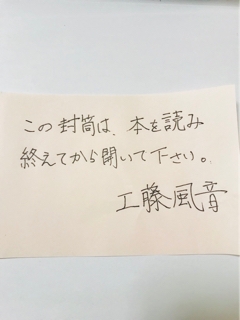 この封筒は、本を読み
終えてから開いて下さい。
工藤風音